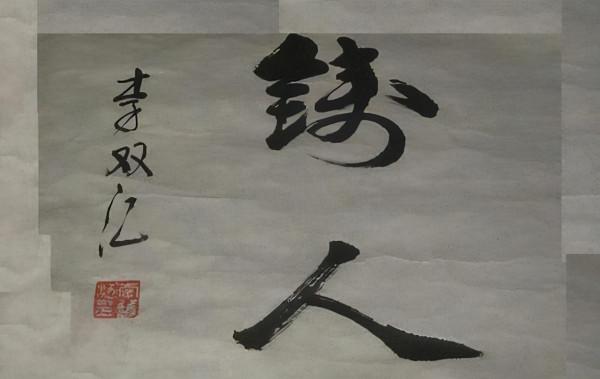 铸人
李双江